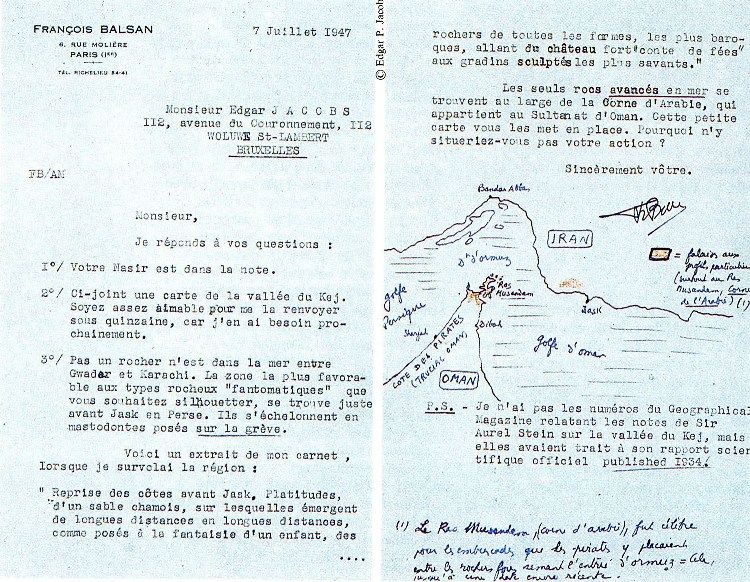 FRANÇOIS BALSAN
6, RUE MOLIÈRE
PARIS (IER)
TÉL. RICHELIEU 84-41
7 Juillet 1947
Monsieur Edgar J A C O B S
112, avenue du Couronnement, 112
WOLUWE St-LAMBERT
BRUXELLES
FB/AM
Monsieur,
Je réponds à vos questions :
1°/ Votre Nasir est dans la note.
2°/ Ci-joint une carte de la vallée du Kej.
Soyez assez aimable pour me la renvoyer
sous quinzaine, car j'en ai besoin pro-
chainement.
3°/ Pas un rocher n'est dans la mer entre
Gwader et Karachi. La zone la plus favora-
ble aux types rocheux "fantomatiques" que
vous souhaitez silhouetter, se trouve juste
avant Jask en Perse. Ils s'échelonnent en
mastodontes posés sur la grève.
Voici un extrait de mon carnet ,
lorsque je survolai la région :
" Reprise des côtes avant Jask. Platitudes,
d'un sable chamois, sur lesquelles émergent
de longues distances en longues distances,
comme posés à la fantaisie d'un enfant, des
....
© Edgar P. Jacob
rochers de toutes les formes, les plus baro-
ques, allant du château fort"conte de fées"
aux gradins sculptés les plus savants."
Les seuls rocs avancés en mer se
trouvent au large de la Corne d'Arabie, qui
appartient au Sultanat d'Oman. Cette petite
carte vous les met en place. Pourquoi n'y
situeriez-vous pas votre action ?
Sincèrement vôtre.
Bandar Abbas
IRAN
Dt d'ormuz
= falaises aux
profils particuliers
(surtout au Ras
Musandam, Corne
de l'Arabie) (1)
Ras
Musandam
golfe
Persique
Jask
Dibah
golfe d'oman
COTE DES PIRATES
(TRUCIAL OMAN)
OMAN
P.S. - Je n'ai pas les numéros du Geographical
Magazine relatant les notes de Sir
Aurel Stein sur la vallée du Kej, mais
elles avaient trait à son rapport scien
tifique officiel published 1934.
(1) Le Ras Musandam, (corne d'arabie), fut célèbre
pour les embuscades que les pirates y plaçaient
entre les rochers fors semant l'entrée d'ormuz = Cela,
jusqu'à une date encore récente.